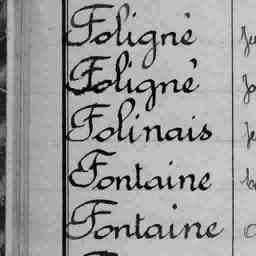 Foligné
Foligné
Folinais
Fontaine
Fontaine